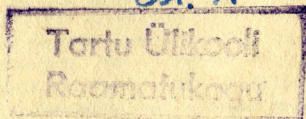 Tartu Ülikooli
Raamatukogu